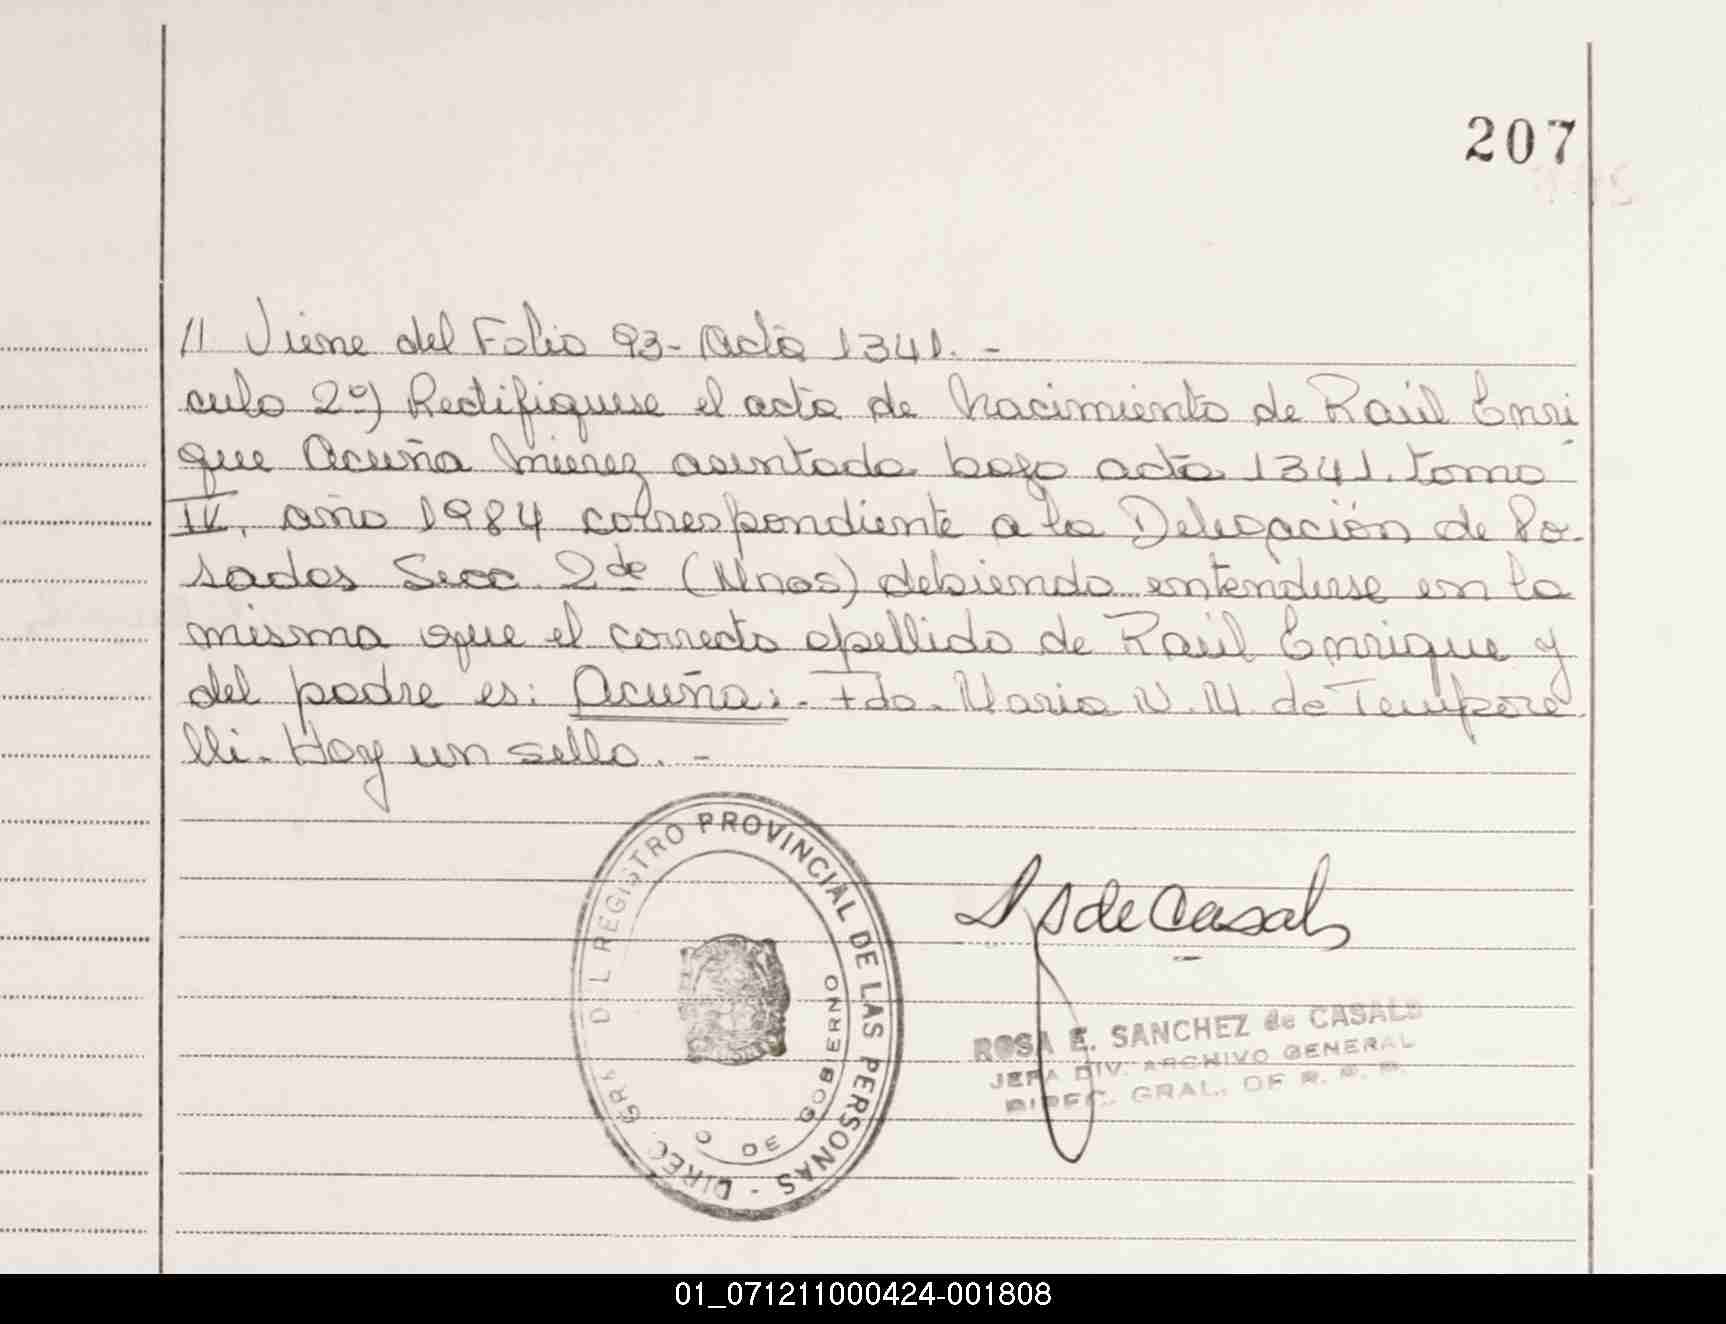 207
// Viene del Folio 93- Acta 1341. -
culo 2º) Rectifiquese el acta de Nacimiento de Raúl Enri
que Acuña Mierez asentada bajo acta 1341. tomo
IV, año 1984 correspondiente a la Delegación de Po-
sadas Secc 2da (Mnes) debiendo entenderse en la
misma que el correcto apellido de Raúl Enrique y
del padre es: Acuña.-. Fdo. Maria N. M. de Tempore
lli. Hay un sello. -
DIREC GRAL DEL REGISTRO PROVINCIAL DE LAS PERSONAS -
DE GOBIERNO
S de Casals
ROSA E. SANCHEZ de CASALS
JEFA DIV. ARCHIVO GENERAL
DIREC. GRAL. DE R. P. P.
01_071211000424-001808